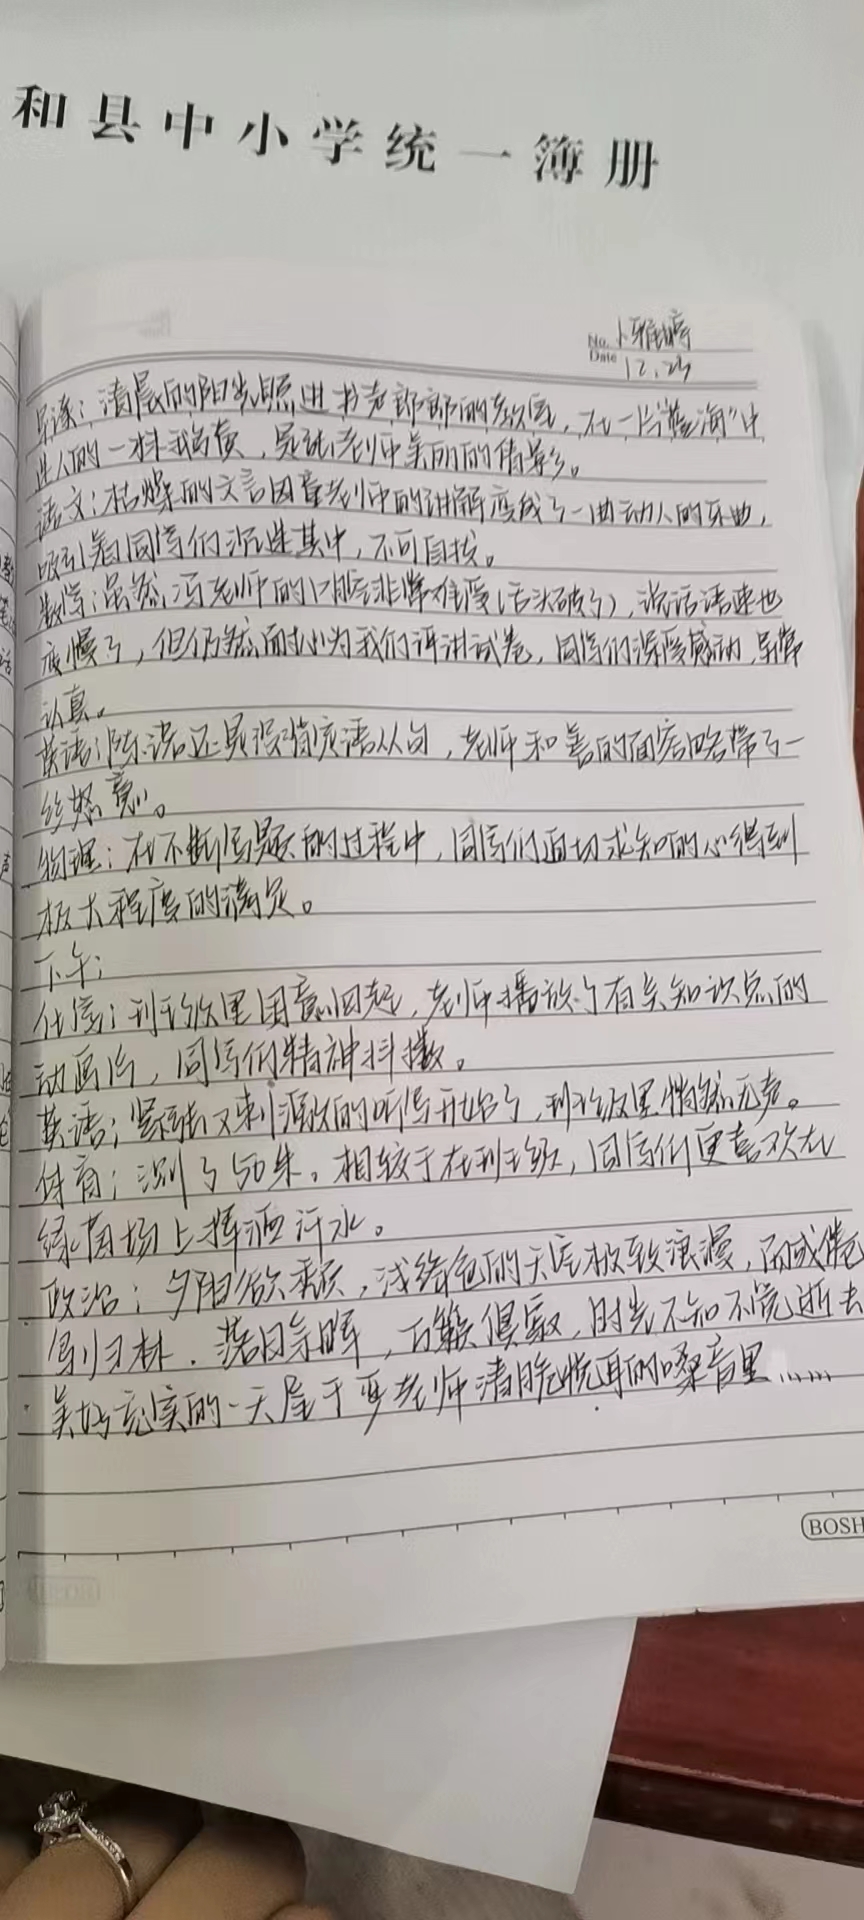 和县中小学统一簿册
No. 卜雅婷
Date 12.24
早读：清晨的阳光照进书声郎郎的教室，在一片"蓝海"中
迷人的一抹，是张老师美丽的倩影。
语文：枯燥的文言因章老师的讲解变成了一曲动人的乐曲，
吸引着同学们沉迷其中，不可自拔。
数学：虽然冯老师的口腔非常难受（舌头破了），说话语速也
放慢了，但仍然耐心为我们评讲试卷，同学们深受感动，异常
认真。
英语：陈诺还是没背定语从句，老师和善的面容略带了一
丝怒意。
物理：在不断写题的过程中，同学们迫切求知的心得到
极大程度的满足。
下午：
化学：班级里困意四起，老师播放了有关知识点的
动画片，同学们精神抖擞。
英语：紧张又刺激的听写开始了，班级里悄然无声。
体育：测了50米。相较于在班级，同学们更喜欢在
绿茵场上挥洒汗水。
政治：夕阳欲颓，浅绛色的天空极致浪漫，两或倦
鸟归林．落日余晖，万籁俱寂，时光不知不觉逝去
美好充实的一天尾于夏老师清脆悦耳的嗓音里……
BOSH